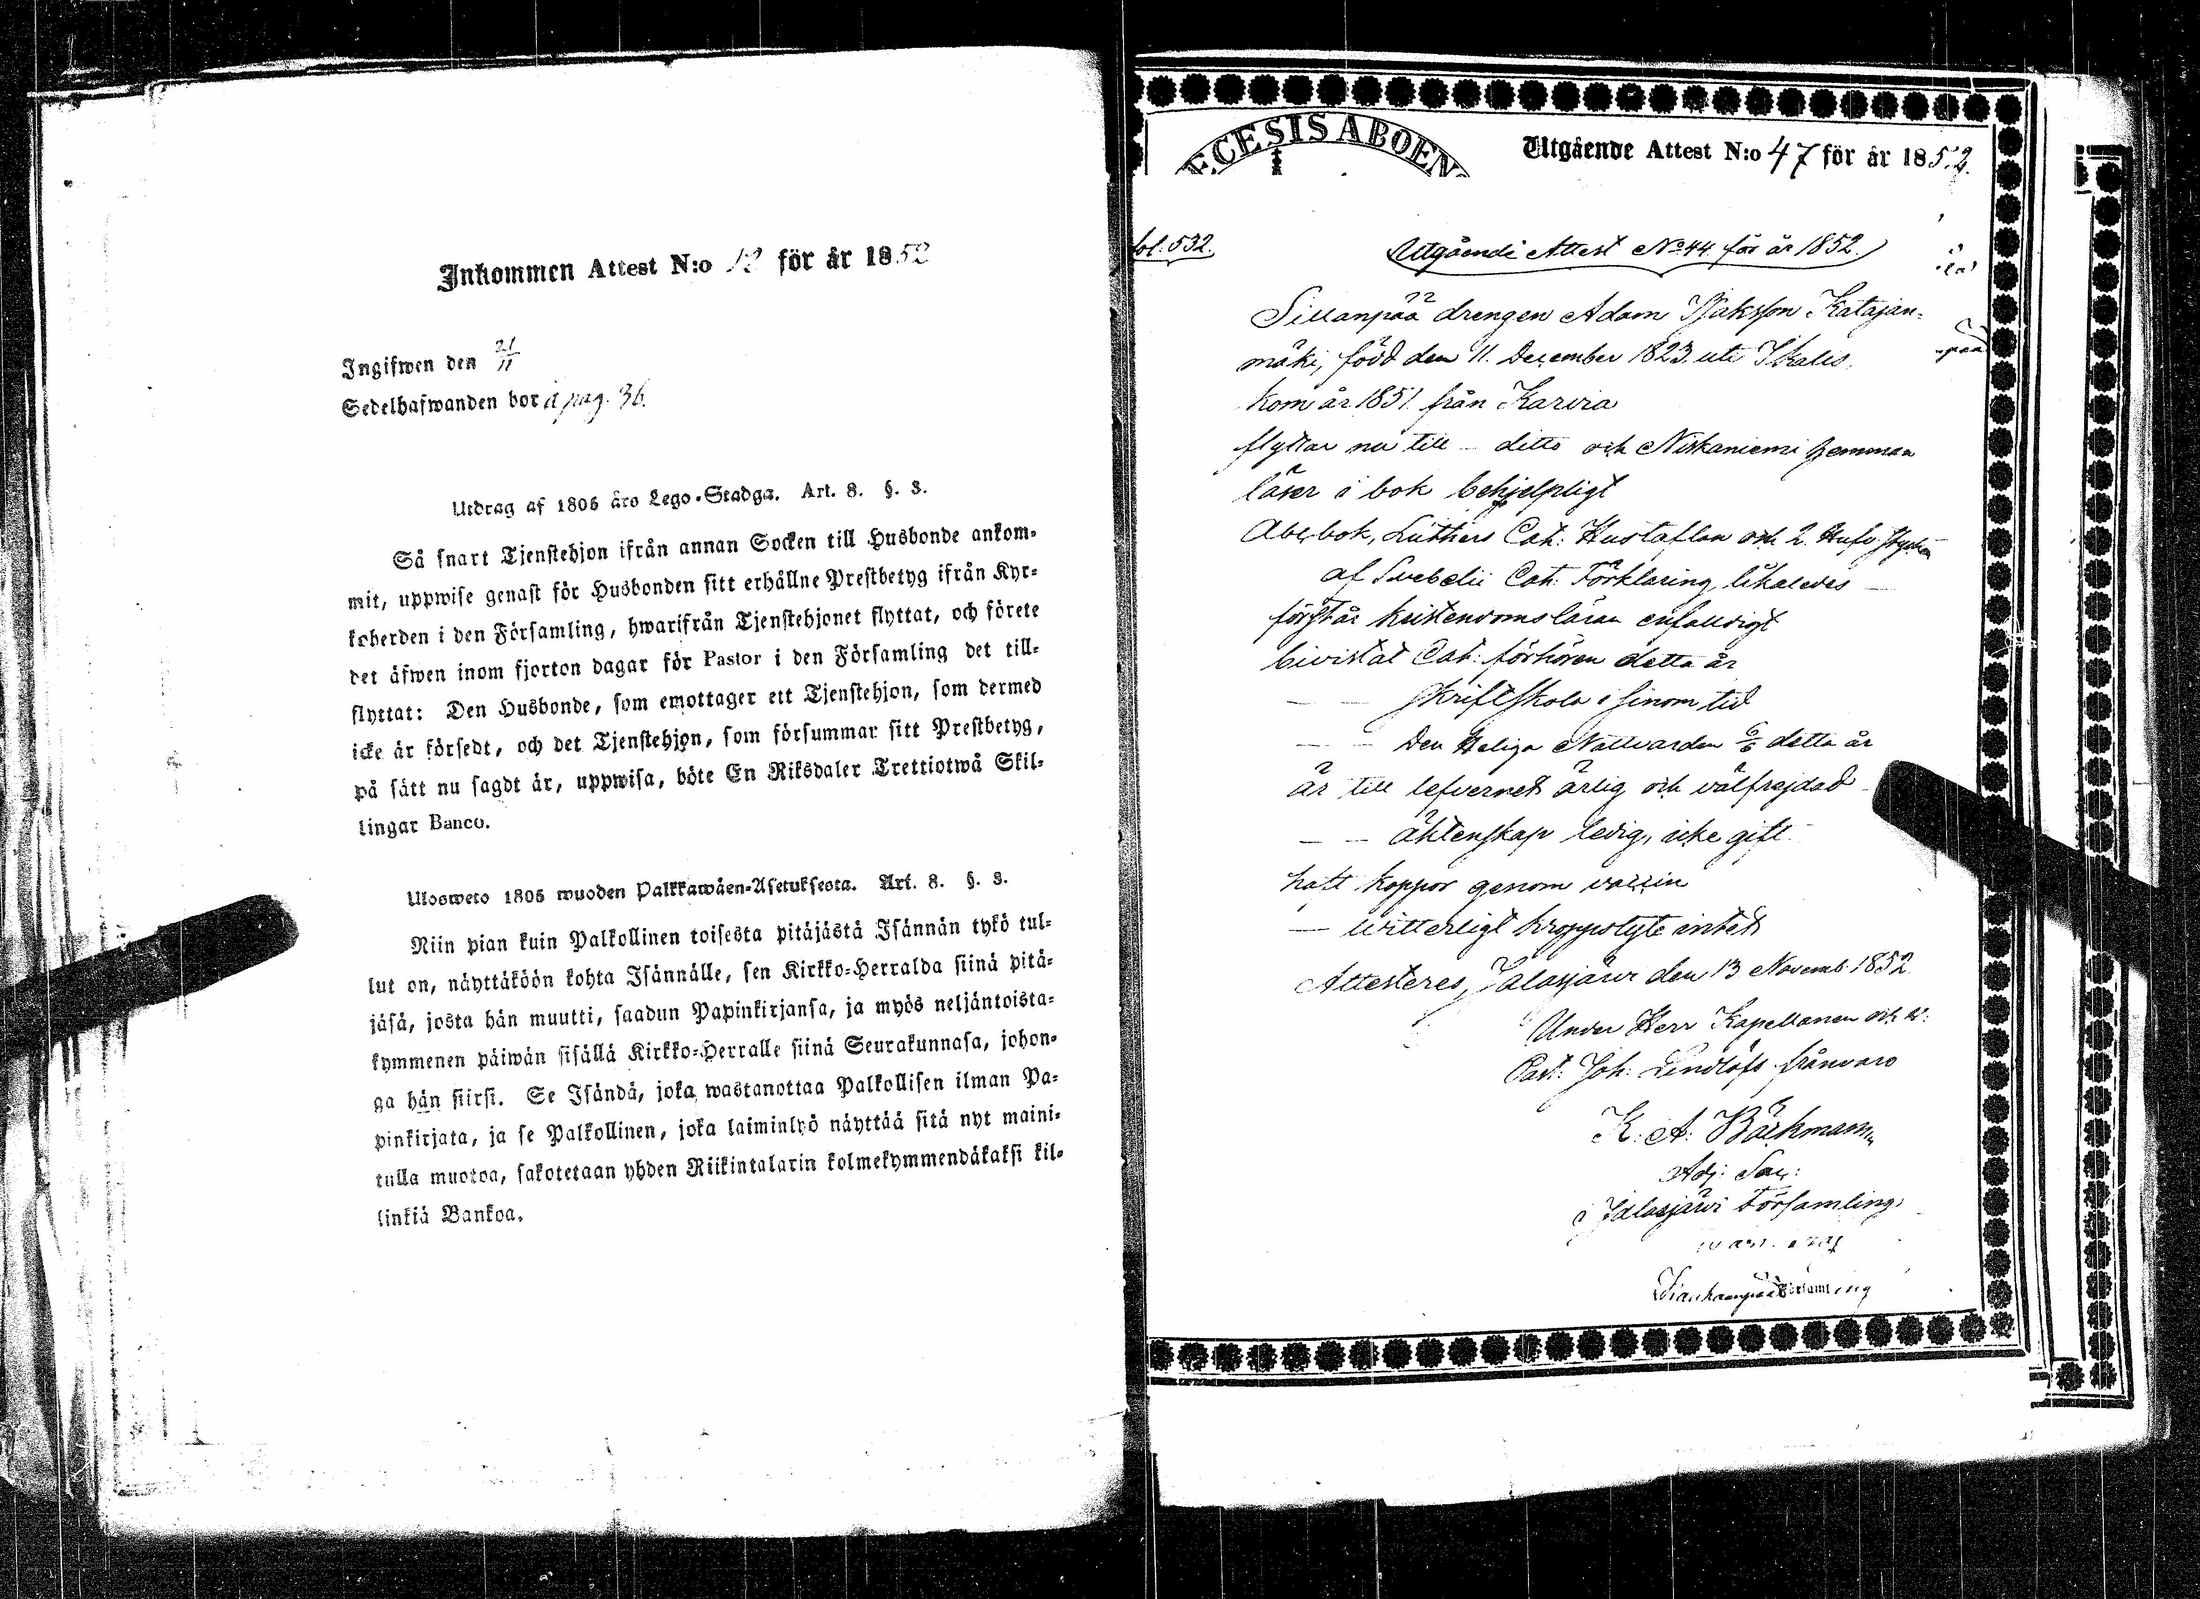 Inkommen Attest N:o 12 för år 1852
Ingifwen den 21/11
Sedelhafwanden bor å pag. 36.
Utdrag af 1805 års Lego-Stadga. Art. 8. §. 3.
Så snart Tjenstehjon ifrån annan Socken till Husbonde ankom-
mit, uppwise genast för Husbonden sitt erhållne Prestbetyg ifrån Kyr-
koherden i den Församling, hwarifrån Tjenstehjonet flyttat, och förete
det äfwen inom fjorton dagar för Pastor i den Församling det till-
flyttat: Den Husbonde, som emottager ett Tjenstehjon, som dermed
icke är försedt, och det Tjenstehjon, som försummar sitt Prestbetyg,
på sätt nu sagdt är, uppwisa, böte En Riksdaler Trettiotwå Skil-
lingar Banco.
Ulosweto 1805 wuoden Palkkawäen-Asetuksesta. Art. 8. §. 3.
Niin pian kuin Palkollinen toisesta pitäjästä Isännän tykö tul-
lut on, näyttäköön kohta Isännälle, sen Kirkko-Herralda siinä pitä-
jäsä, josta hän muutti, saadun Papinkirjansa, ja myös neljäntoista-
kymmenen päiwän sisällä Kirkko-Herralle siinä Seurakunnasa, johon-
ga hän siirsi. Se Isändä, joka wastanottaa Palkollisen ilman Pa-
pinkirjata, ja se Palkollinen, joka laiminlyö näyttää sitä nyt maini-
tulla muotoa, sakotetaan yhden Riikintalarin kolmekymmendäkaksi kil-
linkiä Bankoa.
ECESIS ABOEN
Utgående Attest N:o 47 för år 1852.
fol. 532.
Utgående Attest No 44 för år 1852.
Sillanpää drengen Adam Isaksson Katajan-
mäki, född den 11. December 1823. uti Ikalis,
kom år 1851 från Karvia
flyttar nu till - ditto och Niskaniemi hemman
läser i bok behjelpligt
Abc bok, Luthers Cat: Hustaflan och 2. Hufv. stycken
af Svebelii Cat: Förklaring likaledes
förstår kristendomsläran enfaldigt
bivistat Cat: förhören detta år
— — skriftskola i sinom tid
— — Den Heliga Nattvarden 6/6 detta år
är till lefvernet ärlig och välfrejdad
— — äktenskap ledig, icke gift
haft koppor genom vaccin
— witterligt kroppslyte intet
Attesteres, Jalasjärvi den 13 Novemb. 1852
Under Herr Kapellanen och v:
Past: Joh: Lindlöfs frånvaro
K: A: Bäckman
Adj: Sac:
i Jalasjärvi Församling